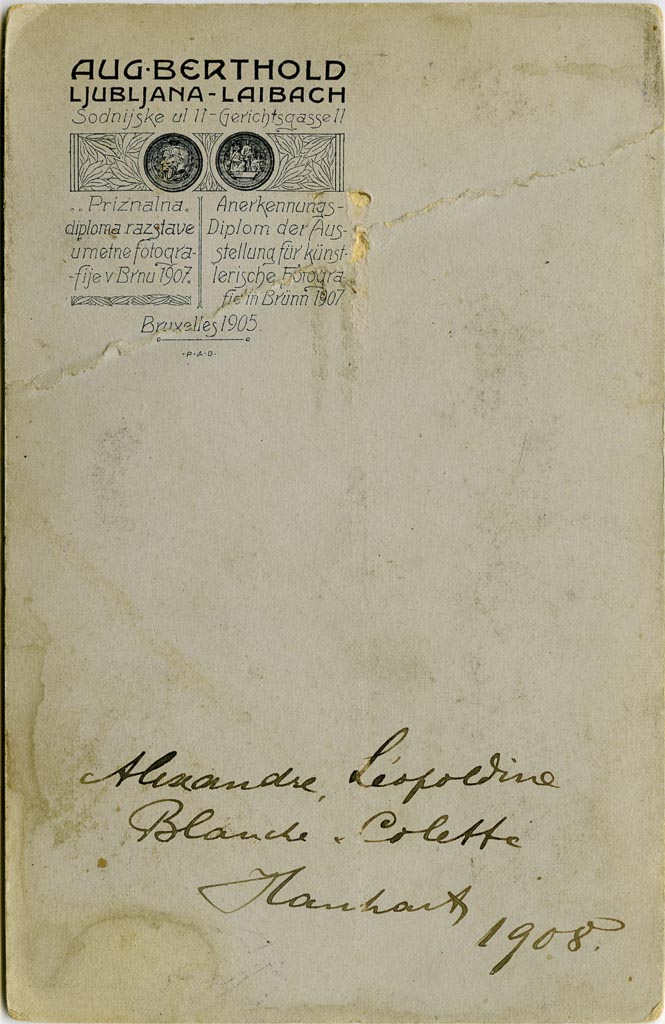 AUG·BERTHOLD
LJUBLJANA-LAIBACH
Sodnijske ul 11-Gerichtsgasse 11
Priznalna
diploma razstave
umetne fotogra-
-fije v Brnu 1907.
Anerkennungs-
Diplom der Aus-
stellung für künst-
lerische Fotogra
fie in Brünn 1907
Bruxelles 1905.
·P·&·B·
Alexandre, Léopoldine
Blanche - Colette
Hanhart
1908.